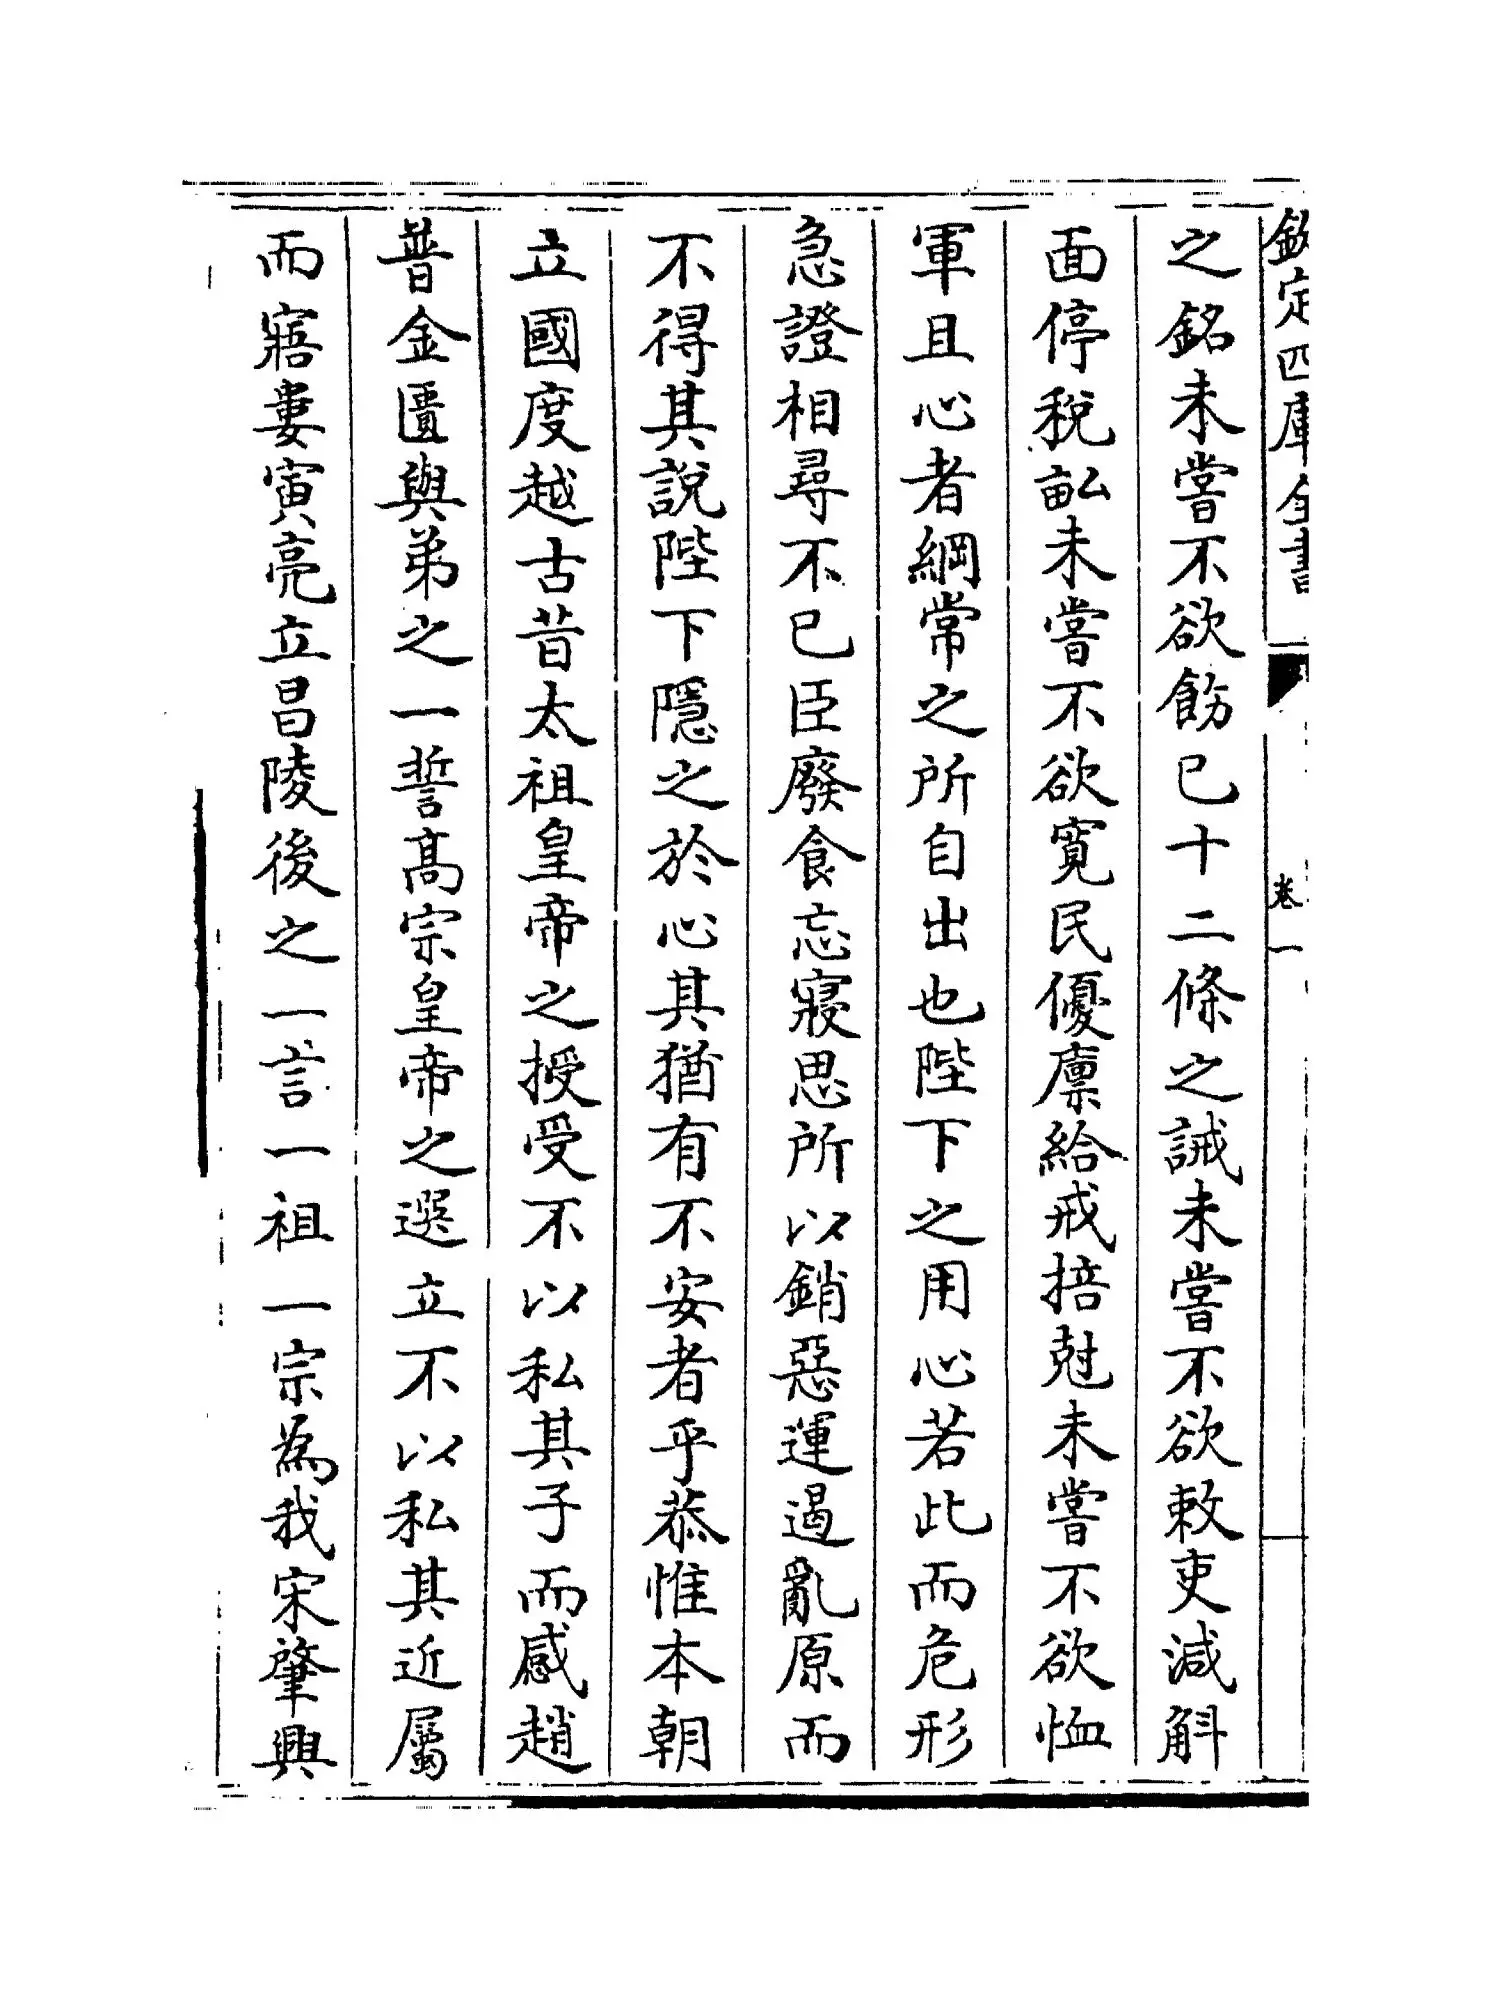 欽定四庫全書
卷一
之銘未嘗不欲飭已十二條之誡未嘗不欲敕吏減斛
面停稅畝未嘗不欲寛民優廪給戒掊尅未嘗不欲恤
軍且心者綱常之所自出也陛下之用心若此而危形
急證相尋不已臣廢食忘寢思所以銷惡運遏亂原而
不得其說陛下隱之於心其猶有不安者乎恭惟本朝
立國度越古昔太祖皇帝之授受不以私其子而感趙
普金匱與弟之一誓髙宗皇帝之選立不以私其近屬
而寤婁寅亮立昌陵後之一言一祖一宗為我宋肇興